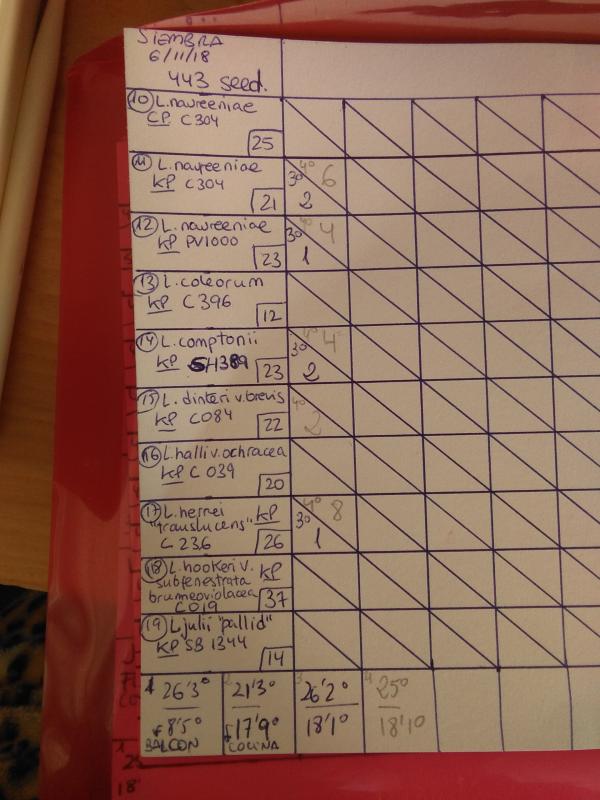 SIEMBRA
6/11/18
443 seed.
10 L. naureeniae
CP C304
25
11 L. naureeniae
KP C304
21
3º 4º 6
2
12 L. naureeniae
KP PV1000
23
3º 4º 4
1
13 L. coleorum
KP C396
12
14 L. comptonii
KP SH389
23
3º 4º 4
2
15 L. dinteri v. brevis
KP C084
22
4º
2
16 L. halli v. ochracea
KP C 039
20
17 L. herrei KP
"translucens"
C 236
26
3º 4º 8
1
18 L. hookeri v. KP
subfenestrata
brumeoviolacea
C019
37
19 L. julii "pallid"
KP SB 1344
14
1 26'3º
8'5º
BALCON
2 21'3º
17'9º
COCINA
3 26'2º
18'1º
4 25º
18'1º